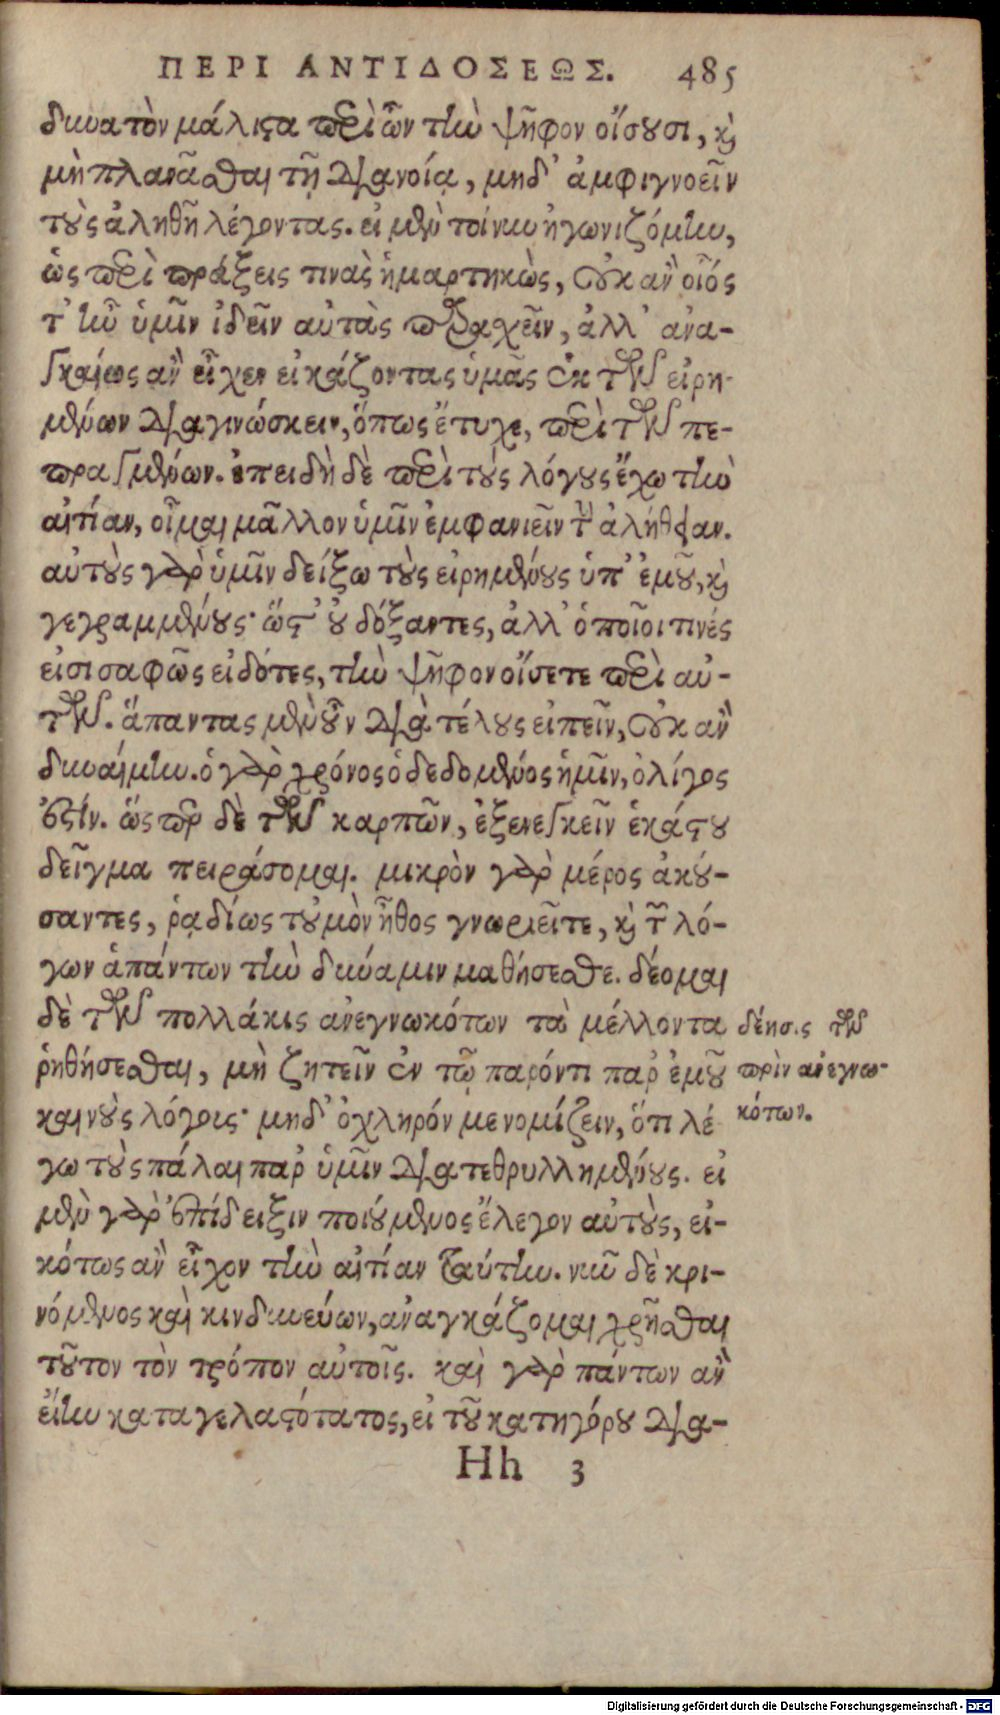 ΠΕΡΙ ΑΝΤΙΔΟΣΕΩΣ. 485
δυνατὸν μάλιστα περὶ ὧν τὴν ψῆφον οἴσουσι, καὶ
μὴ πλανᾶσθαι τῇ διανοίᾳ, μηδ' ἀμφιγνοεῖν
τοὺς ἀληθῆ λέγοντας. εἰ μὲν τοίνυν ἠγωνιζόμην,
ὡς περὶ πράξεις τινὰς ἡμαρτηκὼς, οὐκ ἂν οἷός
τ' ἦν ὑμῖν ἰδεῖν αὐτὰς παρασχεῖν, ἀλλ' ἀνα-
γκαίως ἂν εἶχεν εἰκάζοντας ὑμᾶς ἐκ τῶν εἰρη-
μένων διαγινώσκειν, ὅπως ἔτυχε, περὶ τῶν πε-
πραγμένων. ἐπειδὴ δὲ περὶ τοὺς λόγους ἔχω τὴν
αἰτίαν, οἶμαι μᾶλλον ὑμῖν ἐμφανιεῖν τὴν ἀλήθειαν.
αὐτοὺς γὰρ ὑμῖν δείξω τοὺς εἰρημένους ὑπ' ἐμοῦ, καὶ
γεγραμμένους· ὥστ' οὐ δόξαντες, ἀλλ' ὁποῖοι τινές
εἰσι σαφῶς εἰδότες, τὴν ψῆφον οἴσετε περὶ αὐ-
τῶν. ἅπαντας μὲν οὖν διὰ τέλους εἰπεῖν, οὐκ ἂν
δυναίμην. ὁ γὰρ χρόνος ὁ δεδομένος ἡμῖν, ὀλίγος
ἐστίν. ὥσπερ δὲ τῶν καρπῶν, ἐξενεγκεῖν ἑκάστου
δεῖγμα πειράσομαι. μικρὸν γὰρ μέρος ἀκού-
σαντες, ῥᾳδίως τοὐμὸν ἦθος γνωριεῖτε, καὶ τῶν λό-
γων ἁπάντων τὴν δύναμιν μαθήσεσθε. δέομαι
δὲ τῶν πολλάκις ἀνεγνωκότων τὰ μέλλοντα
ῥηθήσεσθαι, μὴ ζητεῖν ἐν τῷ παρόντι παρ' ἐμοῦ
καινοὺς λόγοις· μηδ' ὀχληρόν με νομίζειν, ὅτι λέ
γω τοὺς πάλαι παρ' ὑμῖν διατεθρυλλημένους. εἰ
μὲν γὰρ ἐπίδειξιν ποιούμενος ἔλεγον αὐτοὺς, εἰ-
κότως ἂν εἶχον τὴν αἰτίαν ταύτην. νῦν δὲ κρι-
νόμενος καὶ κινδυνεύων, ἀναγκάζομαι χρῆσθαι
τοῦτον τὸν τρόπον αὐτοῖς. καὶ γὰρ πάντων ἂν
εἴην καταγελαστότατος, εἰ τοῦ κατηγόρου δια-
Hh 3
δέησις τῶν
πρὶν ἀνεγνω-
κότων.
Digitalisierung gefördert durch die Deutsche Forschungsgemeinschaft - DFG